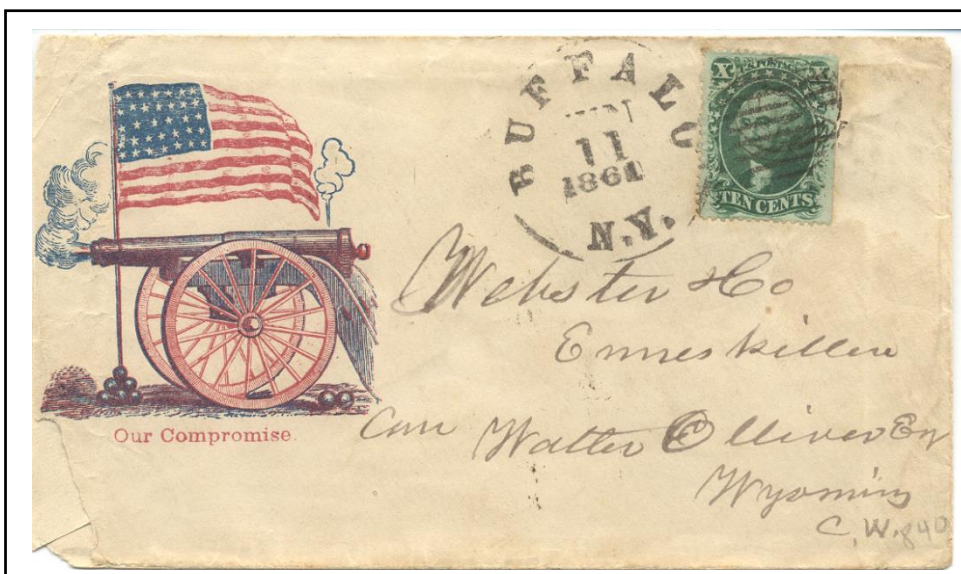 BUFFALO
JUN
11
1861
N.Y.
X U.S. POSTAGE X
TEN CENTS
Our Compromise.
Webster & Co
Enneskillen
Care Walter Olliver Esq
Wyoming
C.W. 840